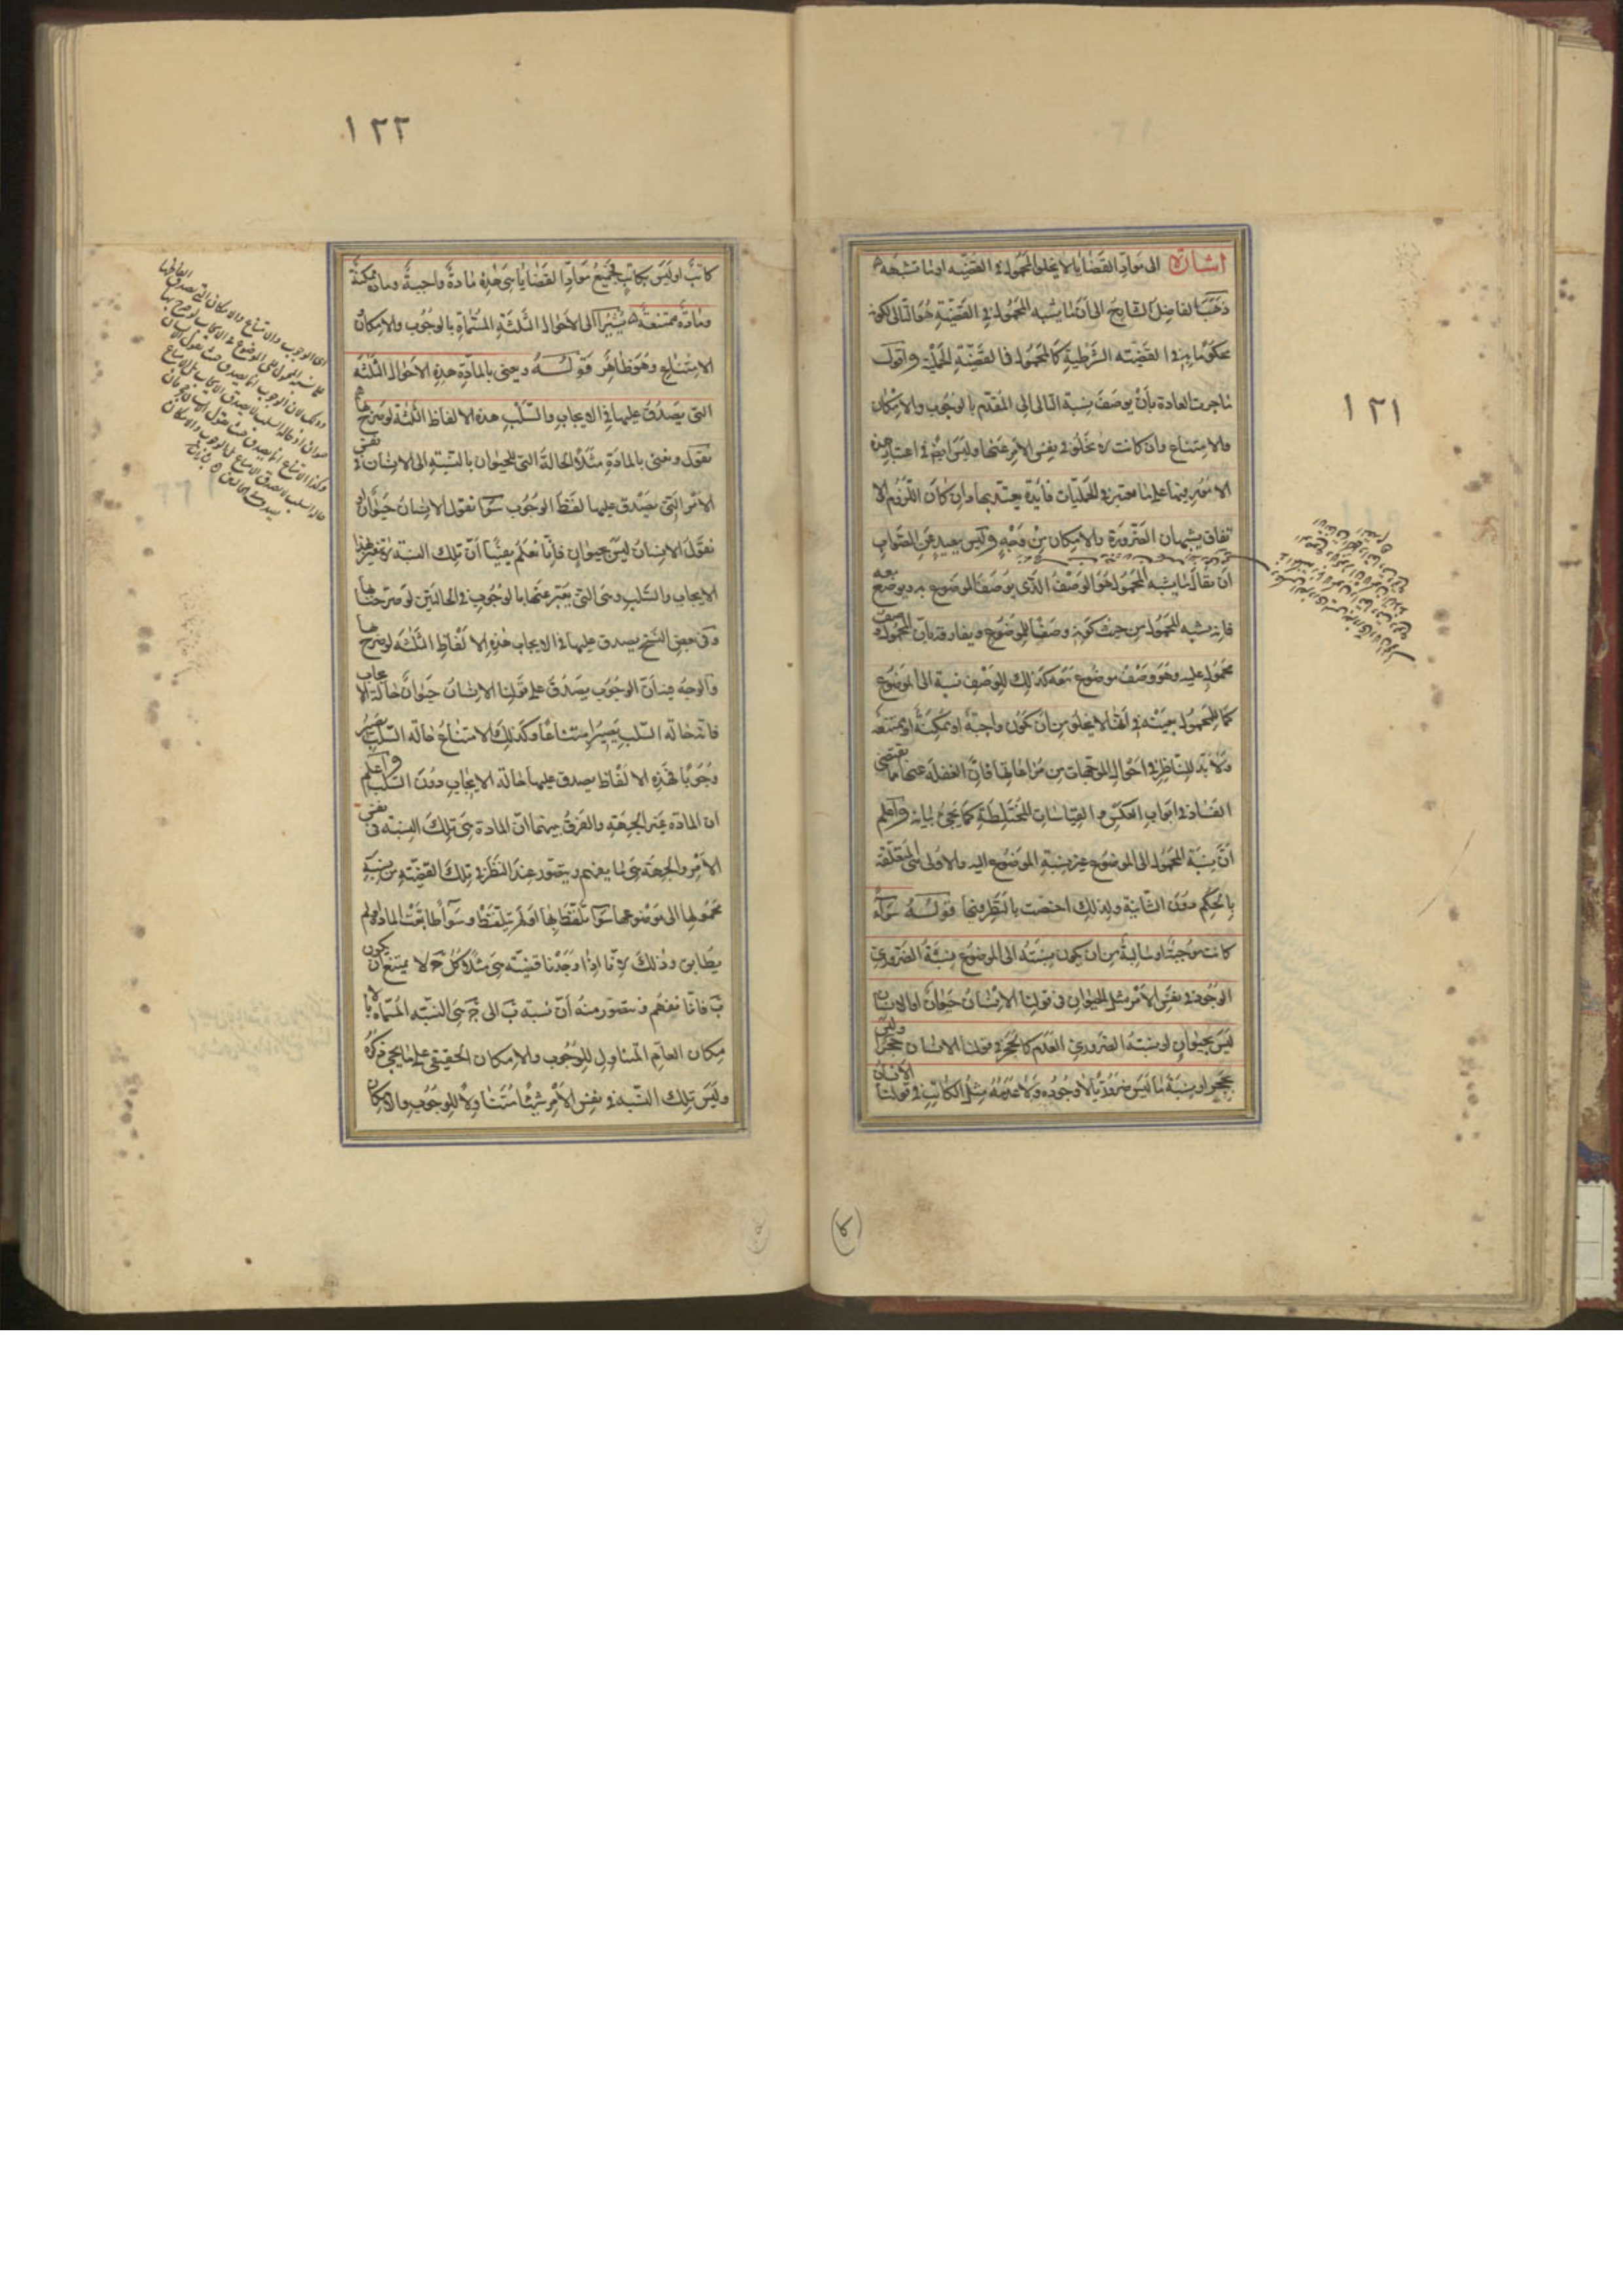 ١٢١
اشارة الى مواد القضايا لا يخلوا المحمول فى القضيه او ما تشبهه
ذهب الفاضل الشارح الى ان ما يشبه المحمول فى القضية هو التالى لكونه
محكوما به فى القضيه الشرطية كالمحمول فى القضية الحملية واقول
ما جرت العادة بأن يوصف نسبة التالى الى المقدم بالوجوب والامكان
والامتناع وان كانت لا تخلوا فى نفس الامر عنها وليس ايضا فى اعتبار هذه
الامور فيما علمنا معتبر فى الحمليات فائدة يعتد بها وان كان اللزوم والا
تفاق يشبهان الضرورة والامكان من وجه وليس ببعيد عن الصواب
ان يقال ما يشبه المحمول هو الوصف الذى يوصف الموضوع به ويوضع معه
فانه يشبه المحمول من حيث كونه وصفا للموضوع ويفارقه بان المحمول وصف
محمول عليه وهو وصف موضوع معه كذلك للوصف نسبة الى الموضوع
كما للمحمول بعينه فى انها لا يخلوا من ان تكون واجبة او ممكنة او ممتنعة
ولا بد للناظر فى احوال الموجهات من مراعاتها فان الغفلة عنها مما تقتضى
الفساد فى ابواب العكس والقياسات المختلطة كما يجئ بيانه واعلم
ان نسبة المحمول الى الموضوع غير نسبة الموضوع اليه والاولى هى المتعلقة
بالحكم دون الثانية ولذلك اختصت بالنظر فيها قوله سواء
كانت موجبة او سالبة من ان يكون نسبته الى الموضوع نسبة الضرورى
الوجود فى نفس الامر مثل الحيوان فى قولنا الانسان حيوان او الانسان
ليس بحيوان او نسبة الضرورى العدم كالحجر فى قولنا الانسان حجر او ليس
بحجر او نسبة ما ليس ضروريا لا وجوده ولا عدمه مثل الكاتب فى قولنا الانسان
١٢٢
كاتب او ليس بكاتب فجميع مواد القضايا هى هذه مادة واجبة ومادة ممكنة
ومادة ممتنعة يشير الى الاحوال الثلثة المسماة بالوجوب والامكان
الامتناع وهو ظاهر قوله ويعنى بالمادة هذه الاحوال الثلثة
التى يصدق عليها فى الايجاب والسلب هذه الالفاظ الثلثة لو صرح بها
نقول ونعنى بالمادة مثلا الحالة التى للحيوان بالنسبة الى الانسان فى نفس
الامر التى يصدق عليها لفظ الوجوب سواء نقول الانسان حيوان او
نقول الانسان ليس بحيوان فانا نعلم يقينا ان تلك النسبة لا تتغير بهذا
الايجاب والسلب وهى التى يعبر عنها بالوجوب فى الحالتين لو صرحنا بها
وفى بعض النسخ يصدق عليها فى الايجاب هذه الالفاظ الثلثة لو صرح بها
والوجه فيه ان الوجوب يصدق على قولنا الانسان حيوان حالة الايجاب
فانه حالة السلب يصير امتناعا وكذلك الامتناع حالة السلب يصير
وجوبا فهذه الالفاظ يصدق عليها حالة الايجاب دون السلب واعلم
ان المادة غير الجهة والفرق بينهما ان المادة هى تلك النسبة فى نفس
الامر والجهة هى لما يفهم ويتصور عند النظر فى تلك القضية من نسبة
محمولها الى موضوعها سواء تلفظ بها او لم يتلفظ وسواء طابقت المادة او لم
يطابق وذلك لانا اذا وجدنا قضية هى مثلا كل ج لا يمتنع ان يكون
ب فانا نفهم ونتصور منه ان نسبة ب الى ج هى النسبة المسماة بالا
مكان العام المتناول للوجوب والامكان الحقيقى على ما يجئ ذكره
وليس تلك النسبة فى نفس الامر شيئا متناولا للوجوب والامكان